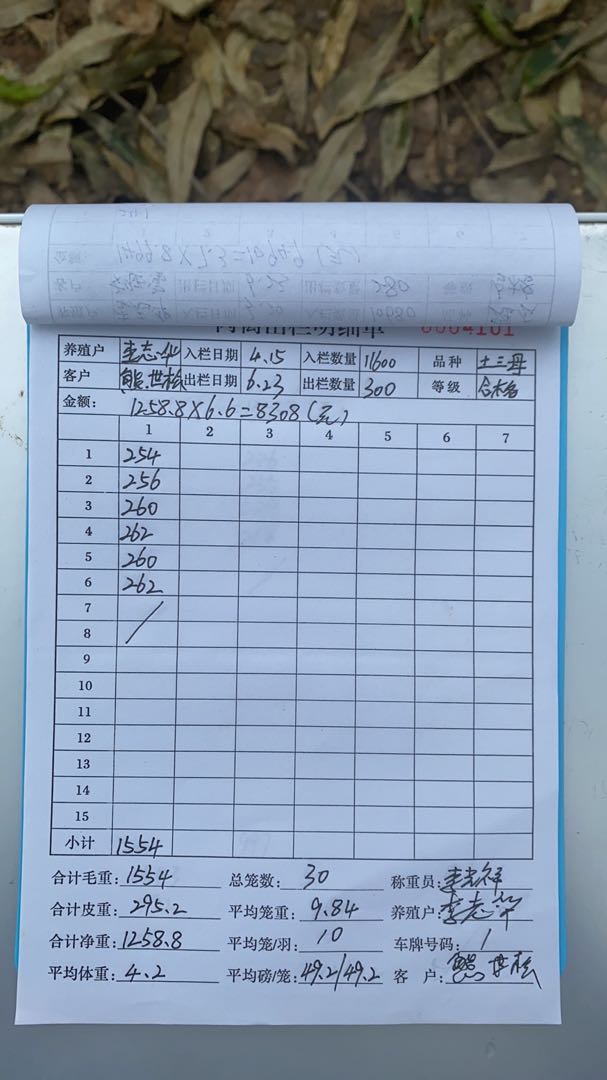 肉禽出栏明细单 0004101
养殖户 李志华 入栏日期 4.15 入栏数量 11600 品种 土三母
客户 熊世松 出栏日期 6.23 出栏数量 300 等级 合格
金额: 1258.8×6.6=8308(元)
1 2 3 4 5 6 7
1 254
2 256
3 260
4 262
5 260
6 262
7
8
9
10
11
12
13
14
15
小计 1554
合计毛重: 1554 总笼数: 30 称重员:
合计皮重: 295.2 平均笼重: 9.84 养殖户: 李志华
合计净重: 1258.8 平均笼/羽: 10 车牌号码: /
平均体重: 4.2 平均磅/笼: 49.2/49.2 客 户: 熊世松